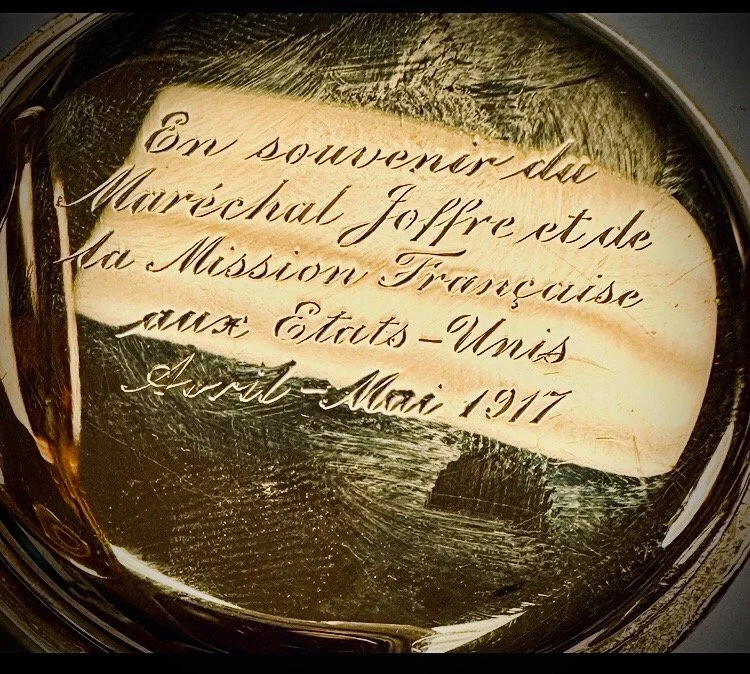 En souvenir du
Maréchal Joffre et de
la Mission Française
aux Etats-Unis
Avril-Mai 1917